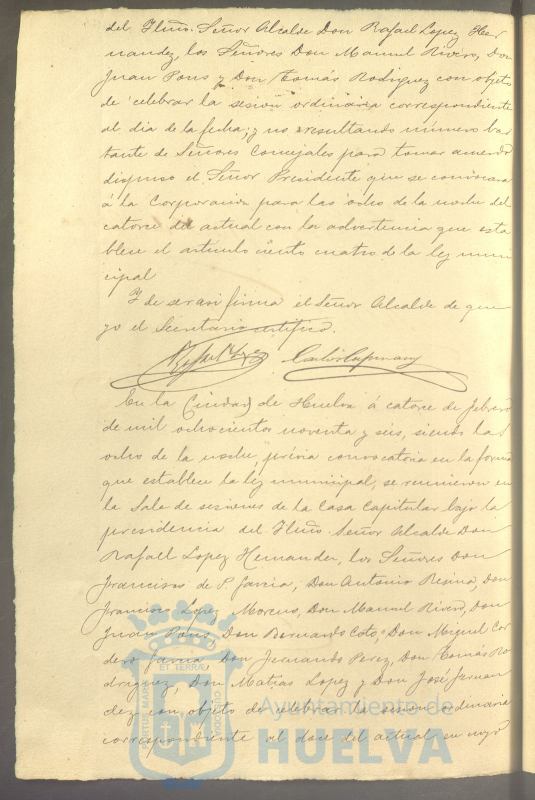 del Iltmo. Señor Alcalde Don Rafael Lopez Her
nandez, los Señores Don Manuel Rivero, Don
Juan Pons y Don Tomás Rodriguez con objeto
de celebrar la sesion ordinaria correspondiente
al dia de la fecha; y no resultando número bas
tante de Señores Concejales para tomar acuerdo
dispuso el Señor Presidente que se convocara
á la Corporacion para las ocho de la noche del
catorce del actual con la advertencia que esta
blece el artículo ciento cuatro de la ley muni
cipal
Y de ser asi firma el Señor Alcalde de que
yo el Secretario certifico.
Rafael Lopez
En la Ciudad de Huelva á catorce de febrero
de mil ochocientos noventa y seis, siendo las
ocho de la noche, prévia convocatoria en la forma
que establece la ley municipal, se reunieron en
la Sala de sesiones de la Casa Capitular bajo la
presidencia del Iltmo Señor Alcalde Don
Rafael Lopez Hernandez, los Señores Don
Francisco de P. García, Don Antonio Resina, Don
Francisco López Moreno, Don Manuel Rivero, Don
Juan Pons, Don Bernardo Coto, Don Miguel Cor
dero Garcia Don Fernando Perez, Don Tomás Ro
driguez, Don Matias Lopez y Don José Fernan
dez con objeto de celebrar la sesion ordinaria
correspondiente al doce del actual en cuyo
ET TERRÆ
PORTUS MARIS
CUSTODIO
Ayuntamiento de
HUELVA